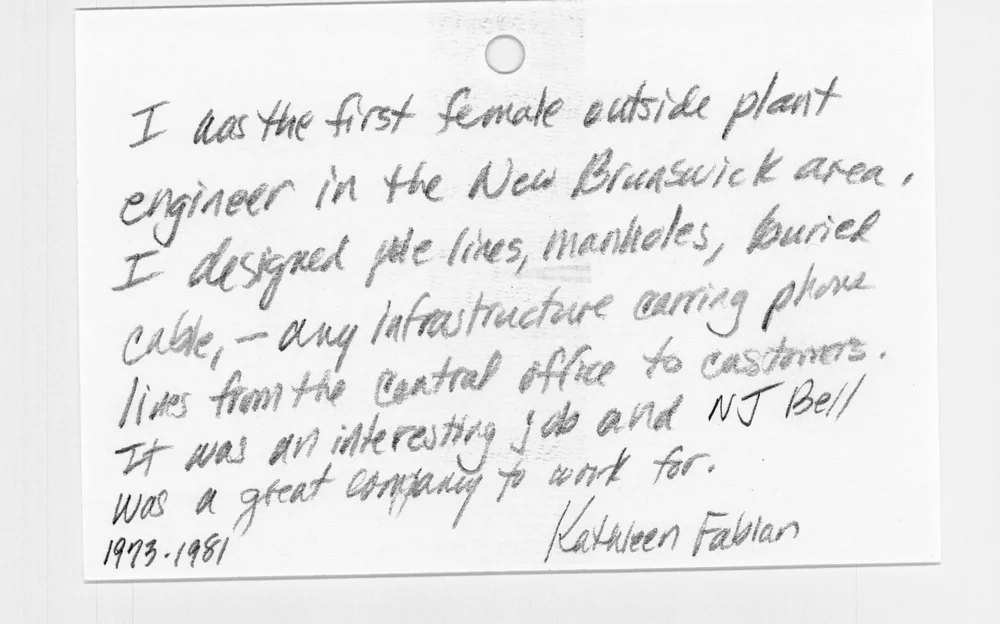 I was the first female outside plant
engineer in the New Brunswick area.
I designed pole lines, manholes, buried
cable, — any infrastructure carring phone
lines from the central office to customers.
It was an interesting job and NJ Bell
was a great company to work for.
1973-1981 Kathleen Fabian